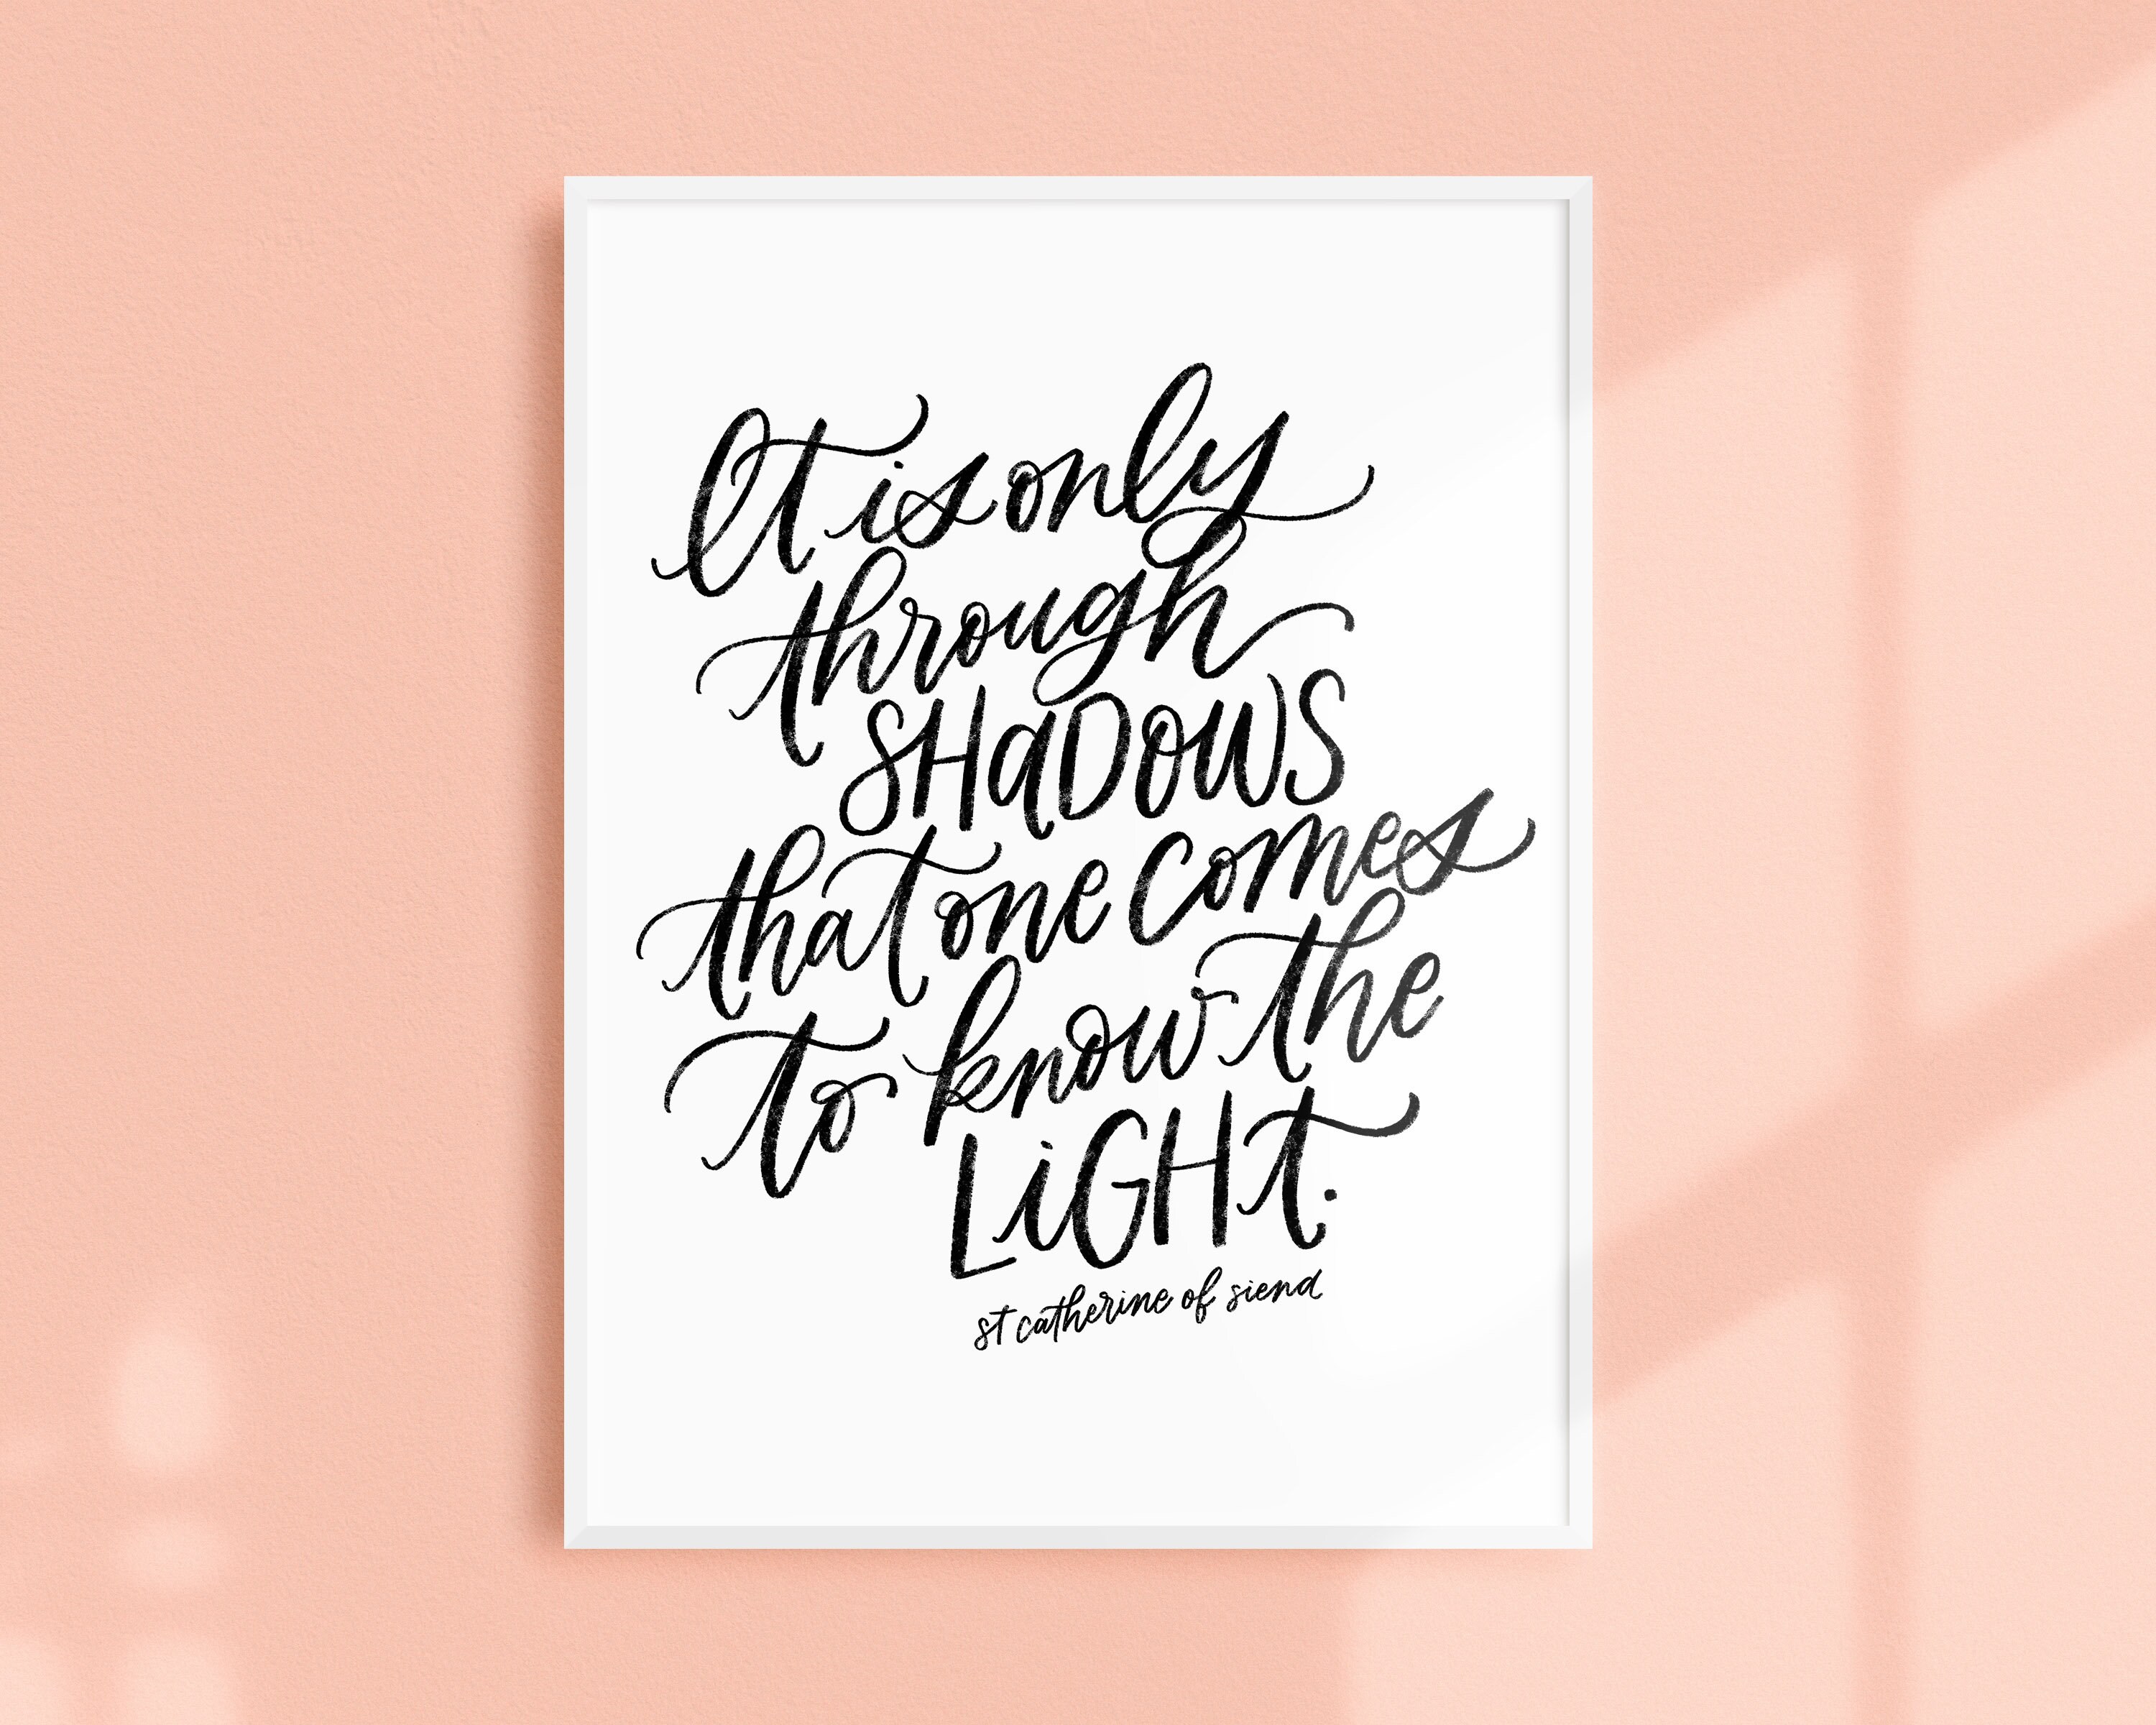 It is only
through
SHaDOWS
that one comes
to know the
LiGHt.
st catherine of siena